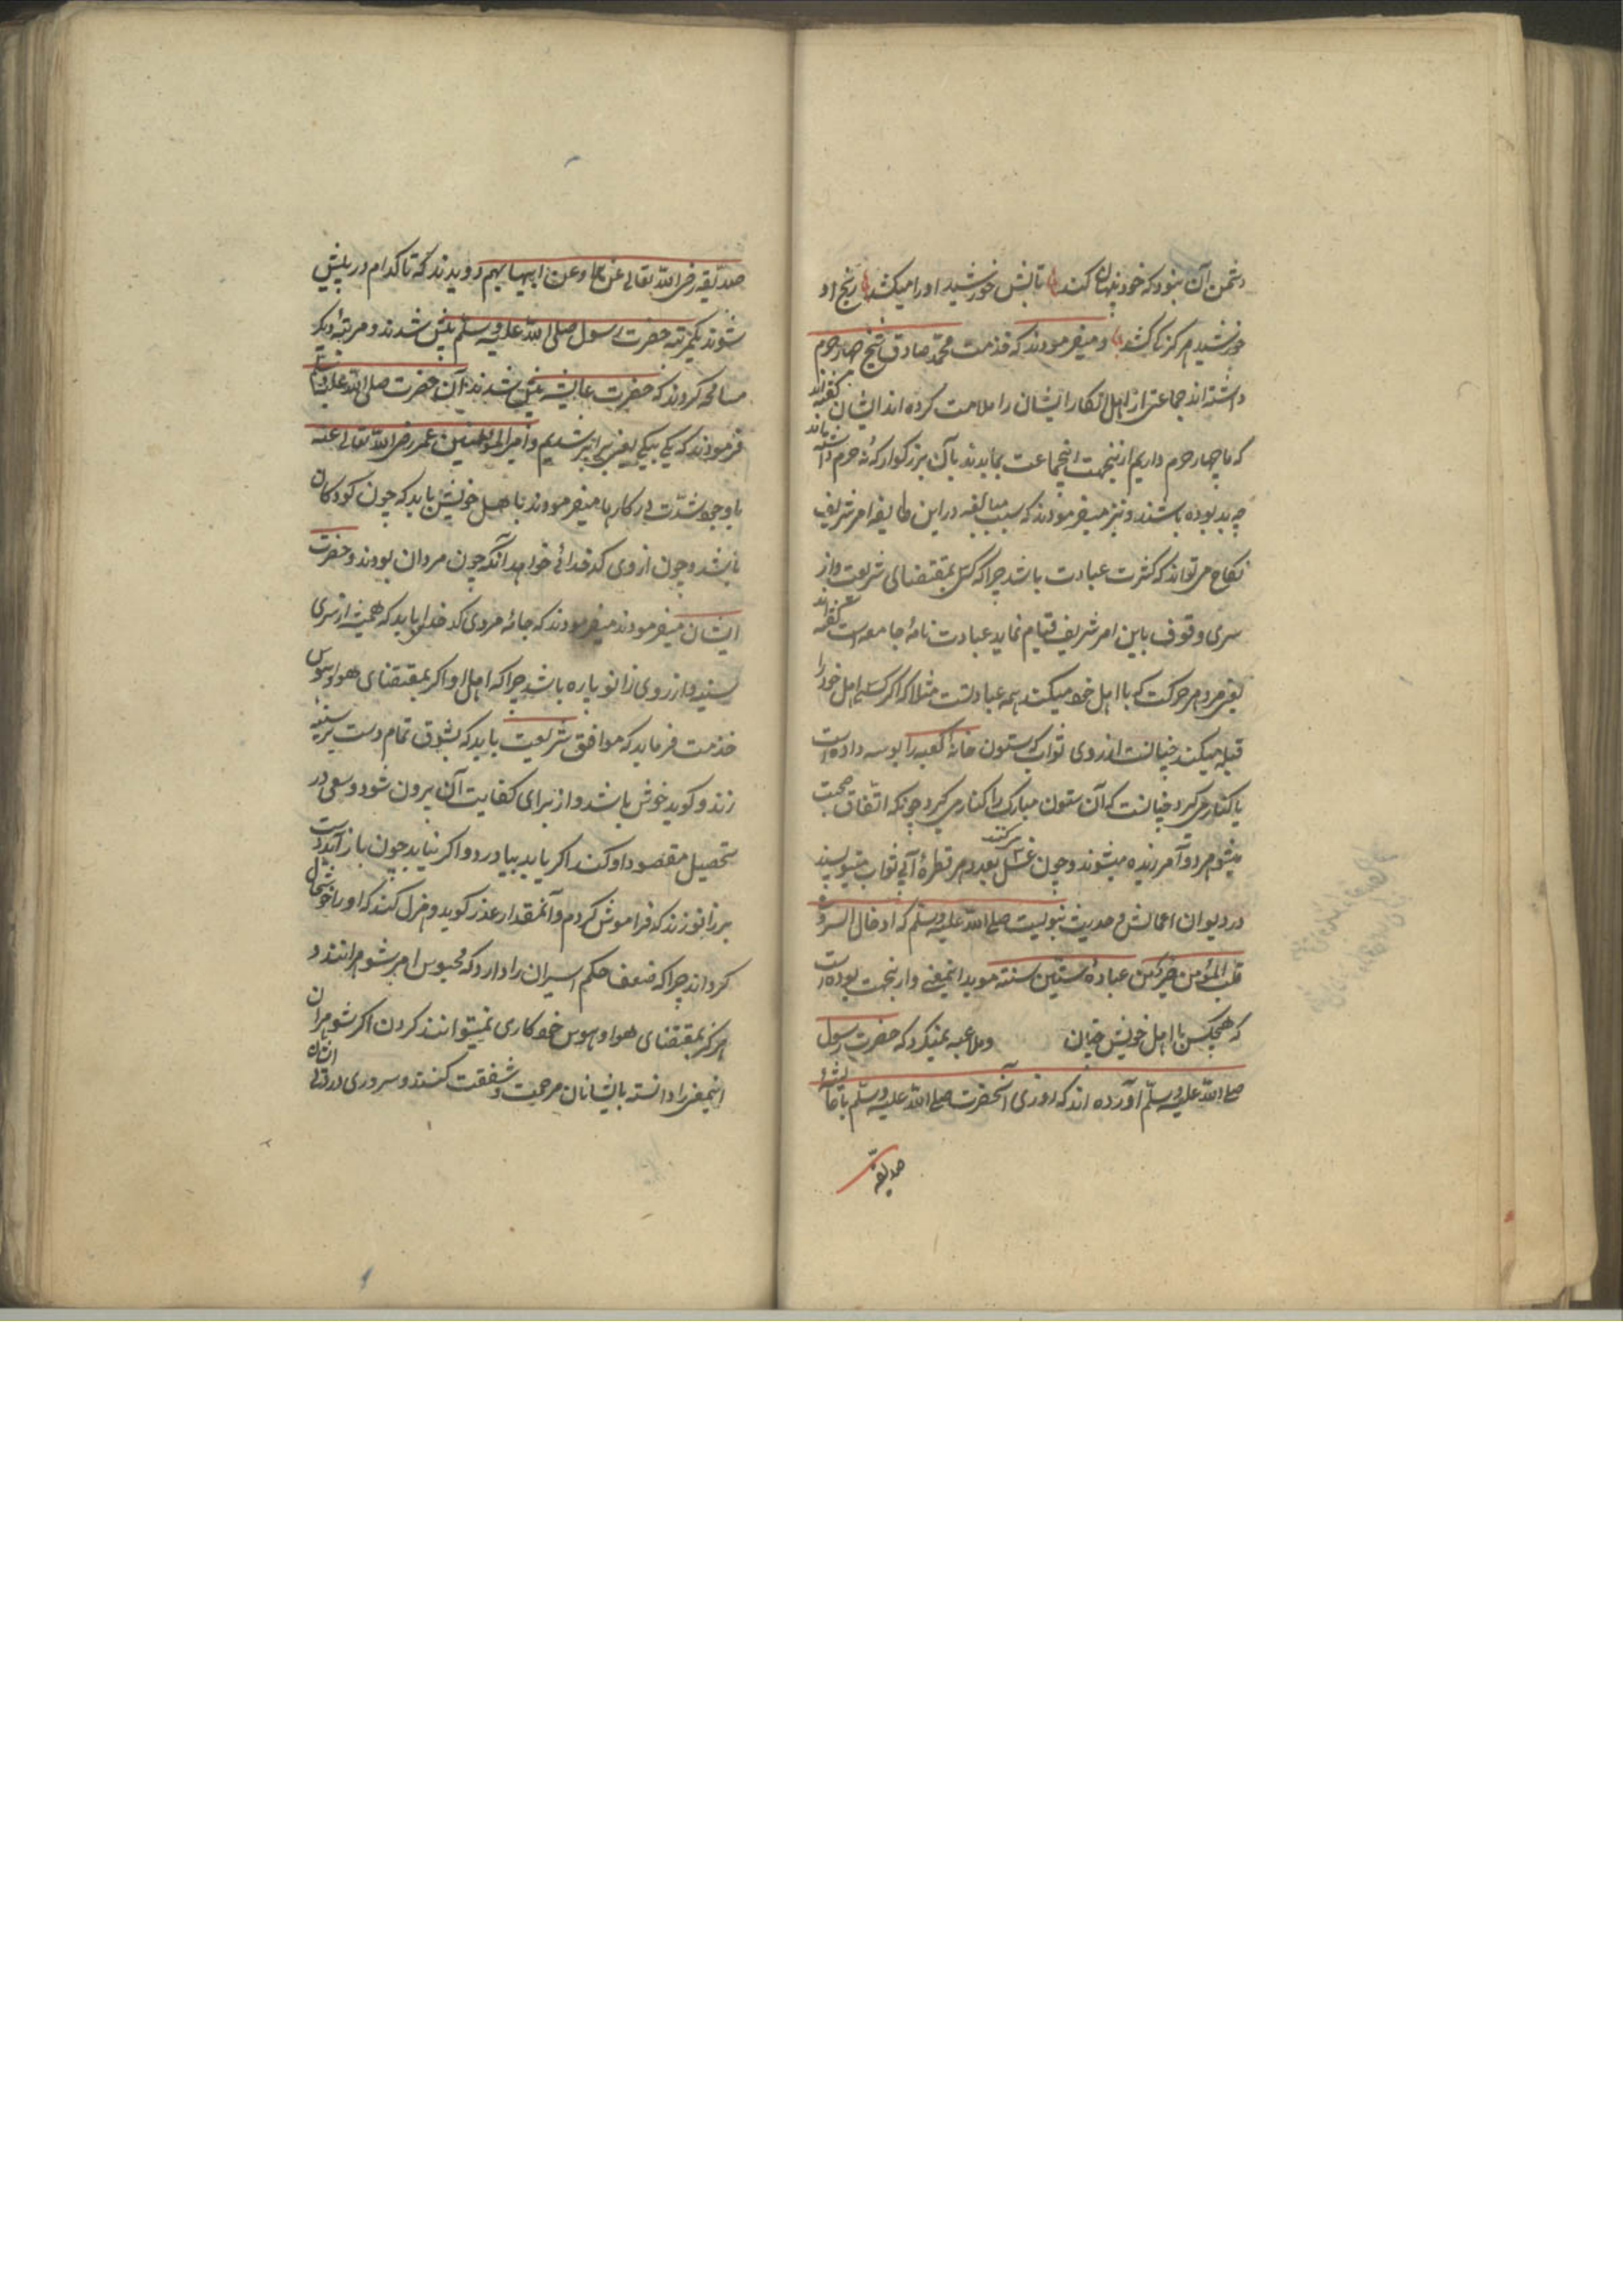 دشمن آن نبود که خود پنهان کند تابش خورشید او را میکشد رنج او
خورشید هرگز ناکشد و میفرمودند که خدمت محمد صادق شیخ چهار حرم
داشته اند جماعتی از اهل انکار ایشان را ملامت کرده اند ایشان گفته اند
که ما چهار حرم داریم ازینجهت اینجماعت بمابدند بآن بزرگوار که نه حرم داشته باند
چه بد بوده باشند و نیز میفرمودند که سبب مبالغه در این طایفه امر شریف
نکاح میتواند که کثرت عبادت باشد چرا که کسی بمقتضای شریعت و از
سری وقوف باین امر شریف قیام نماید عبادت نامهٔ جامعه است گفته اند
یعنی مردم هر حرکت که با اهل خود میکنند همه عبادتست مثلا که اگر کسی اهل خود را
قبله میکند چنانست از روی ثواب که ستون خانهٔ کعبه را بوسه داده است
یا کنار میگیرد چنانست که آن ستون مبارک را کنار میگیرد چونکه اتفاق صحبت
میشود هر دو آمرزیده میشوند و چون غسل میکنند بعدد هر قطرهٔ آبی ثواب مینویسند
در دیوان اعمالش و حدیث نبویست صلی الله علیه وسلم که ادخال السرور
قلب المؤمن خیر من عبادة ستین سنة موید اینمعنی و ازینجهت بوده است
که هیچکس با اهل خویش چنان وملاعبه نمیکرد که حضرت رسول
صلی الله علیه وسلم آورده اند که روزی آنحضرت صلی الله علیه وسلم با عایشهٔ
صدیقه
صدیقه رضی الله تعالی عنها وعن ابیها بهم دویدند که تا کدام در پیش
شوند یکمرتبه حضرت رسول صلی الله علیه وسلم پیش شدند و مرتبهٔ دیگر
مسامحه کردند که حضرت عایشه پیش شدند آن حضرت صلی الله علیه وسلم
فرمودند که یکی بیکی یعنی برابر شدیم و امیرالمؤمنین عمر رضی الله تعالی عنه
با وجود شدت در کارها میفرمودند با اهل خویش باید که چون کودکان
باشد و چون از وی کدخدائی خواهد آنکه چون مردان بودند و حضرت
ایشان میفرمودند میفرمودند که جامهٔ مرد کدخدا باید که همیشه از سری
سینه و از روی زانو پاره باشد چرا که اهل او اگر بمقتضای هوا و هوس
خدمت فرماید که موافق شریعت باید که بشوق تمام دست بر سینه
زند و گوید خوش باشد و از برای کفایت آن بیرون شود و سعی در
تحصیل مقصود او کند اگر یابد بیاورد و اگر نیابد چون باز آید دست
بر زانو زند که فراموش کردم و آنمقدار عذر گوید و هزل کند که او را خوشحال
گرداند چرا که ضعف حکم اسیران را دارد که محبوس امر شوهرانند و
هرگز بمقتضای هوا و هوس خود کاری نمیتوانند کردن اگر شوهران
اینمعنی را دانسته بایشانان مرحمت و شفقت کنند و سروری در دلی ایشان